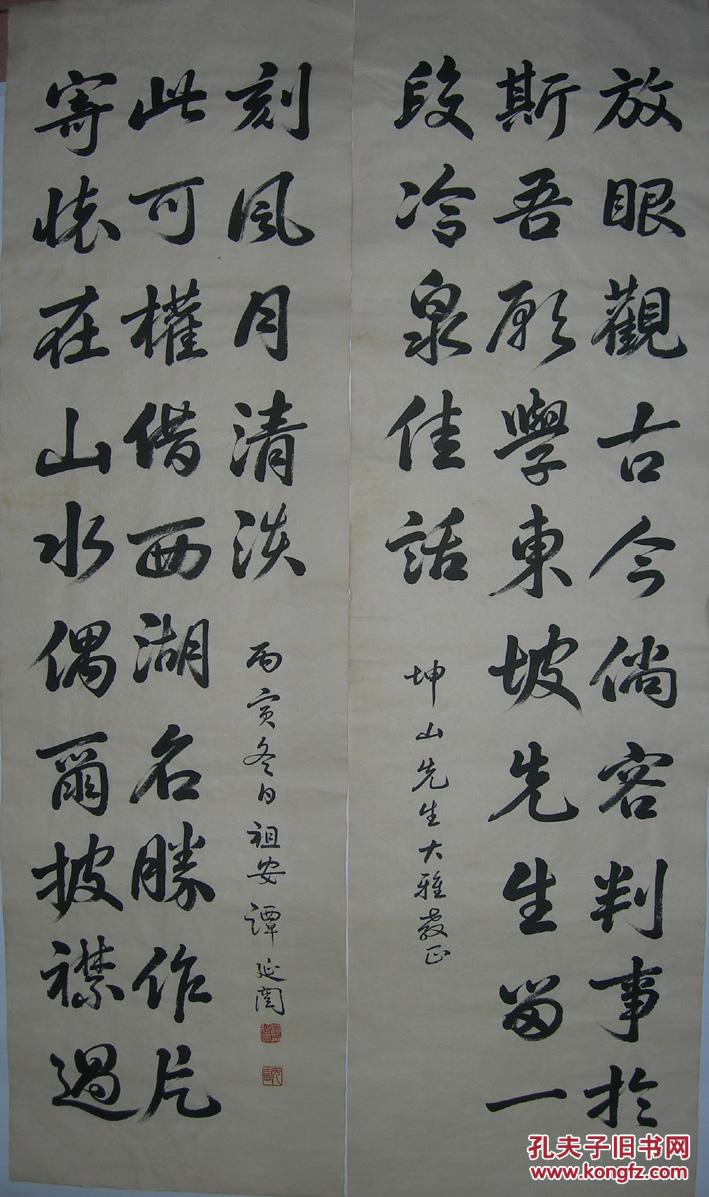 放眼觀古今倘容判事於
斯吾願學東坡先生留一
段冷泉佳話
坤山先生大雅教正
寄懷在山水偶爾披襟過
此可權借西湖名勝作片
刻風月清淡
丙寅冬日祖安譚延闓
孔夫子旧书网
www.kongfz.com